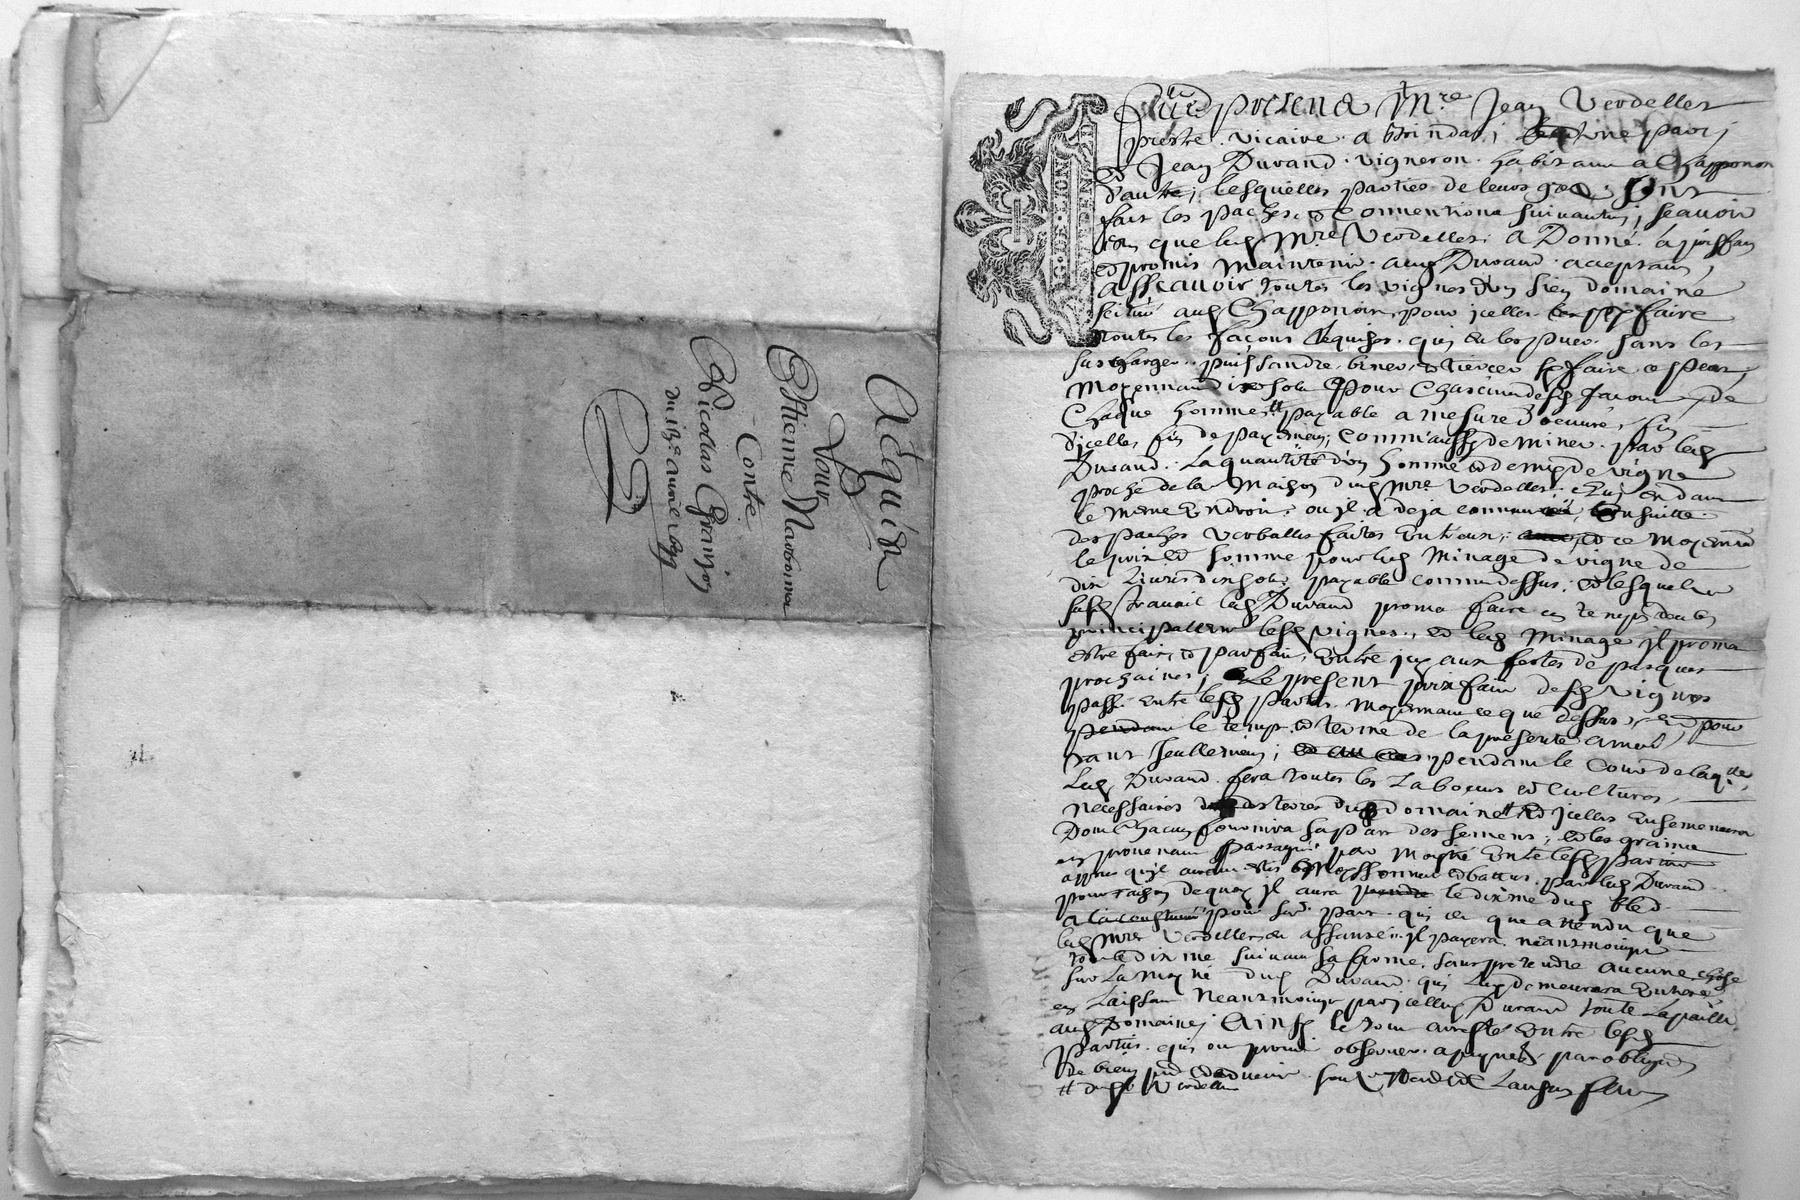 Acquict
Pour
Estienne Narbonna
Conte
Nicolas Granjon
du 15e avril 1677
G. DE LION
Furent presens Mre Jean Verdellet
prestre vicaire a Brindas; d'une part;
et Jean Durand vigneron habitant a Chapponon
d'autre; lesquelles parties de leurs gré ont
fait les paches et conventions suivantes; scavoir
que led Mre Verdellet a Donné a prisfaict
et promis maintenir aud Durand acceptant,
asscavoir toutes les vignes d'un sien domaine
scitué aud Chapponon, pour icelles faire
toutes les façons requises sans les
surcharger puissandre, biner, et tiercer
Moyennant sols pour chascune desd facons de
chaque homme payable a mesure d'oeuvre, fin
d'icelles fin de payement; comm'aussy de miner par led
Durand la quantité d'un homme et demy de vigne
proche de la Maison dud Mre Verdellet
le mesme Endroit ou jl a deja commencé, Ensuitte
des paches verballes faites Entr'eux; et ce moyennant
le prix et somme pour led Minage de vigne de
dix Livres dix sols payable comme dessus; et lesquels
susd travail led Durand promet faire en temps deubs
principallemt lesd vignes, et led Minage jl promet
estre fait et parfait, Entre jcy aux festes de pasques
prochaines; Le present prixfait desd vignes
passé entre lesd parties moyennant ce que dessus, et pour
le temps et terme de la presente année,
tant seullement; pendant le cour de laqlle
led Durand fera toutes les Labours et cultures,
necessaires des terres dud domaine et jcelles Ensemencera
Dont chacun fournira sa part des semens; et les grains
en provenant partagés par moytié Entre lesd parties
appres qu'jls auront estés Moyssonnés et battus par led Durand
pour raison de quoy jl aura le dixme dud bled
a la coustume pour sad part qui est que attendu que
led Mre Verdellet est affansé jl payera neantmoings
tout le dixme suivant sa ferme, sans pretendre aucune chose
sur la moytié dud Durand qui Luy demeurera Entiere
en Laissant neantmoings par jcelluy Durand toute La paille
aud Domaine; Ainsy le tout arresté Entre lesd
parties qui ont promis observer a peyne par obligaon
de biens
# dud Sr Verdellet